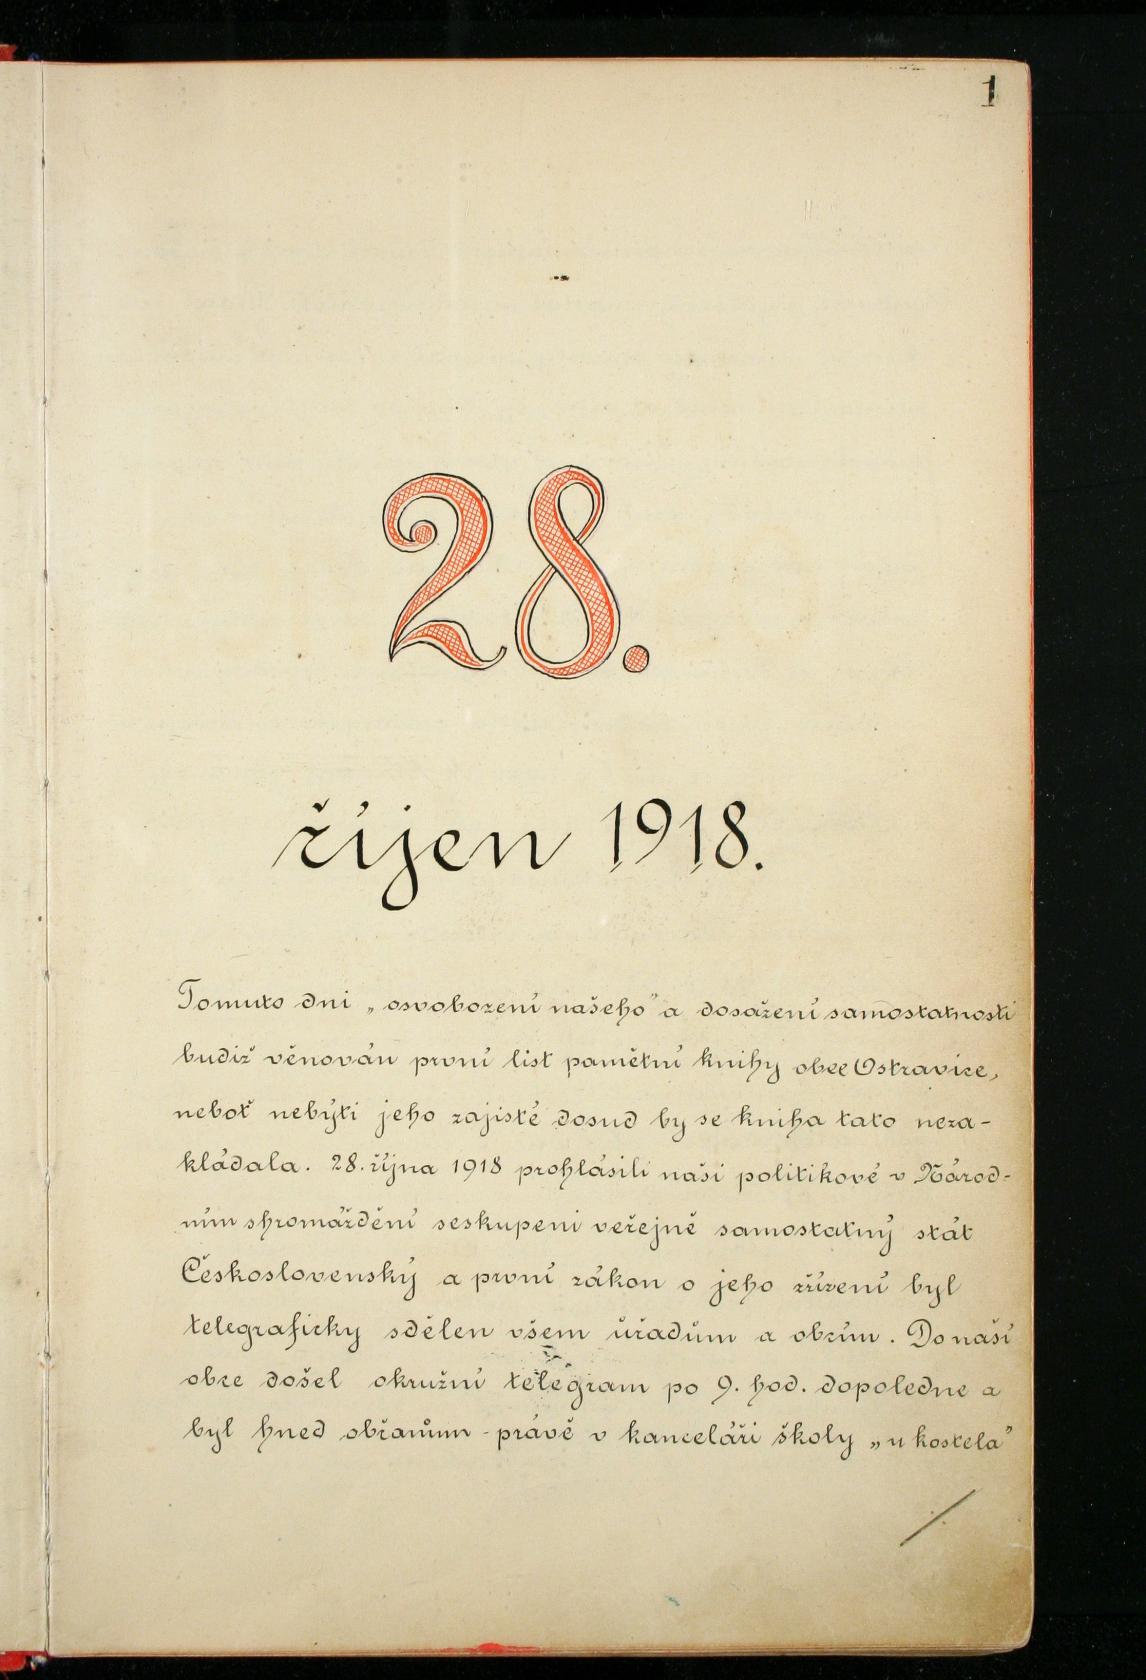 1
28.
říjen 1918.
Tomuto dni „osvobození našeho” a dosažení samostatnosti
budiž věnován první list pamětní knihy obce Ostravice,
neboť nebýti jeho zajisté dosud by se kniha tato neza-
kládala. 28. října 1918 prohlásili naši politikové v Národ-
ním shromáždění seskupeni veřejně samostatný stát
Československý a první zákon o jeho zřízení byl
telegraficky sdělen všem úřadům a obcím. Do naší
obce došel okružní telegram po 9. hod. dopoledne a
byl hned občanům - právě v kanceláři školy „u kostela”